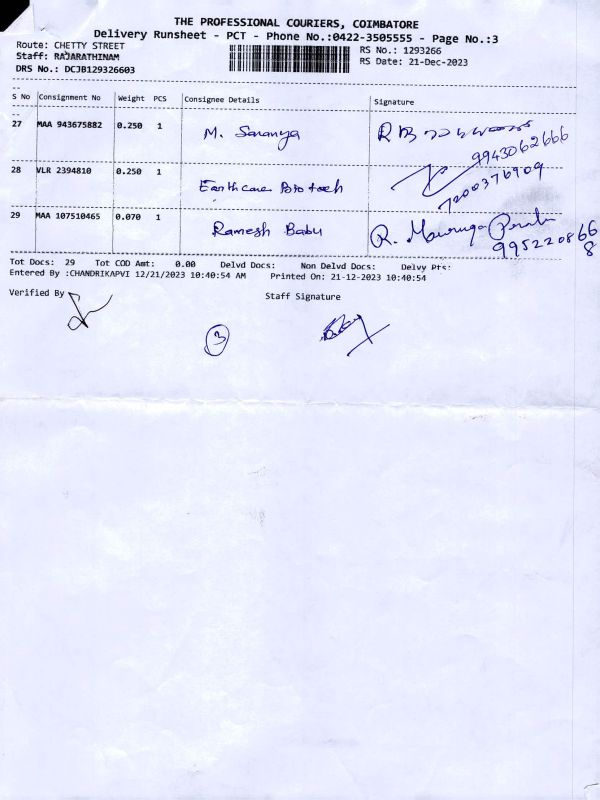 THE PROFESSIONAL COURIERS, COIMBATORE
Delivery Runsheet - PCT - Phone No.:0422-3505555 - Page No.:3
Route: CHETTY STREET RS No.: 1293266
Staff: RAJARATHINAM RS Date: 21-Dec-2023
DRS No.: DCJB129326603
S No Consignment No Weight PCS Consignee Details Signature
27 MAA 943675882 0.250 1 M. Saranya
9943062666
28 VLR 2394810 0.250 1 Earthcare Biotech
7200376909
29 MAA 107510465 0.070 1 Ramesh Babu R.
9952208668
Tot Docs: 29 Tot COD Amt: 0.00 Delvd Docs: Non Delvd Docs: Delvy Pts:
Entered By :CHANDRIKAPVI 12/21/2023 10:40:54 AM Printed On: 21-12-2023 10:40:54
Verified By Staff Signature
3